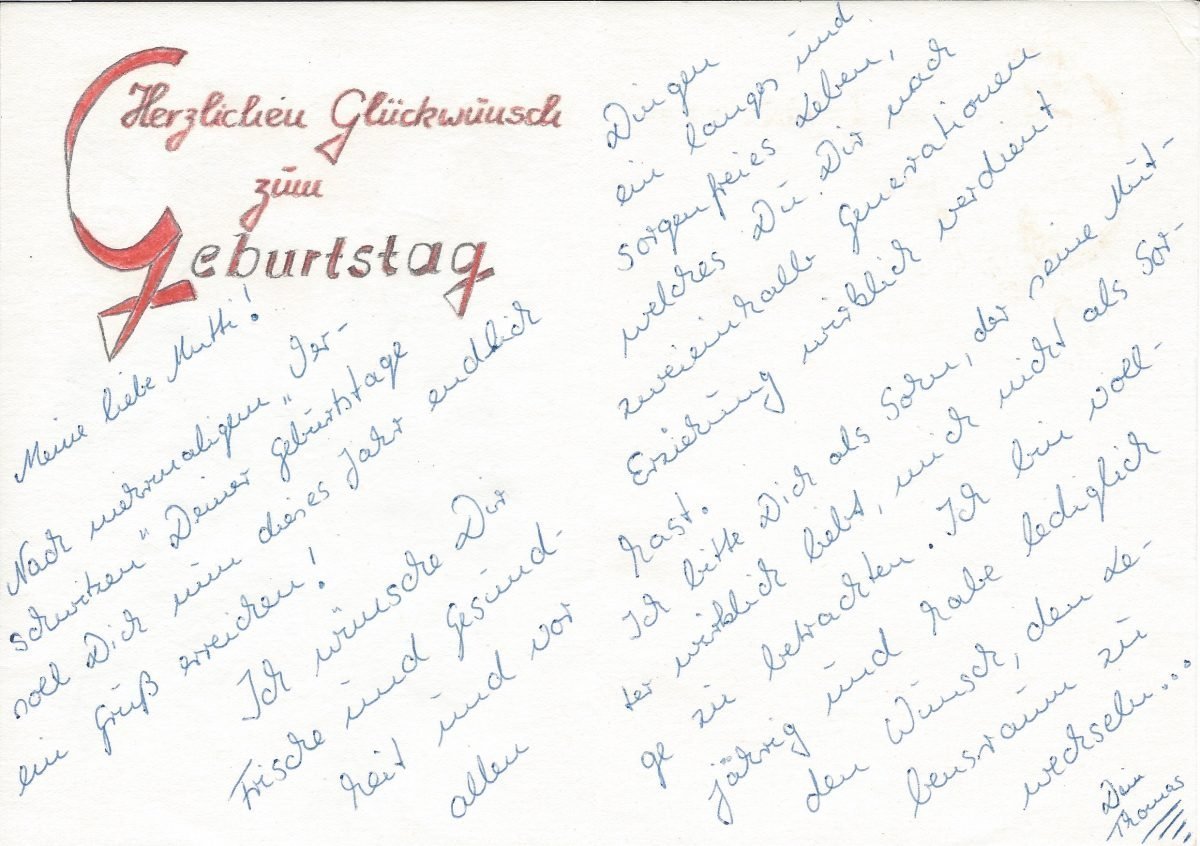 Herzlichen Glückwunsch
zum
Geburtstag
Meine liebe Mutti!
Nach mehrmaligem „Ver-
schwitzen" Deiner Geburtstage
soll Dich nun dieses Jahr endlich
ein Gruß erreichen!
Ich wünsche Dir
Frische und Gesund-
heit und vor
allen
Dingen
ein langes und
sorgenfreies Leben,
welches Du Dir nach
zweieinhalb Generationen
Erziehung wirklich verdient
hast.
Ich bitte Dich als Sohn, der seine Mut-
ter wirklich liebt, mich nicht als Sor-
ge zu betrachten. Ich bin voll-
jährig und habe lediglich
den Wunsch, den Le-
bensraum zu
wechseln...
Dein
Thomas